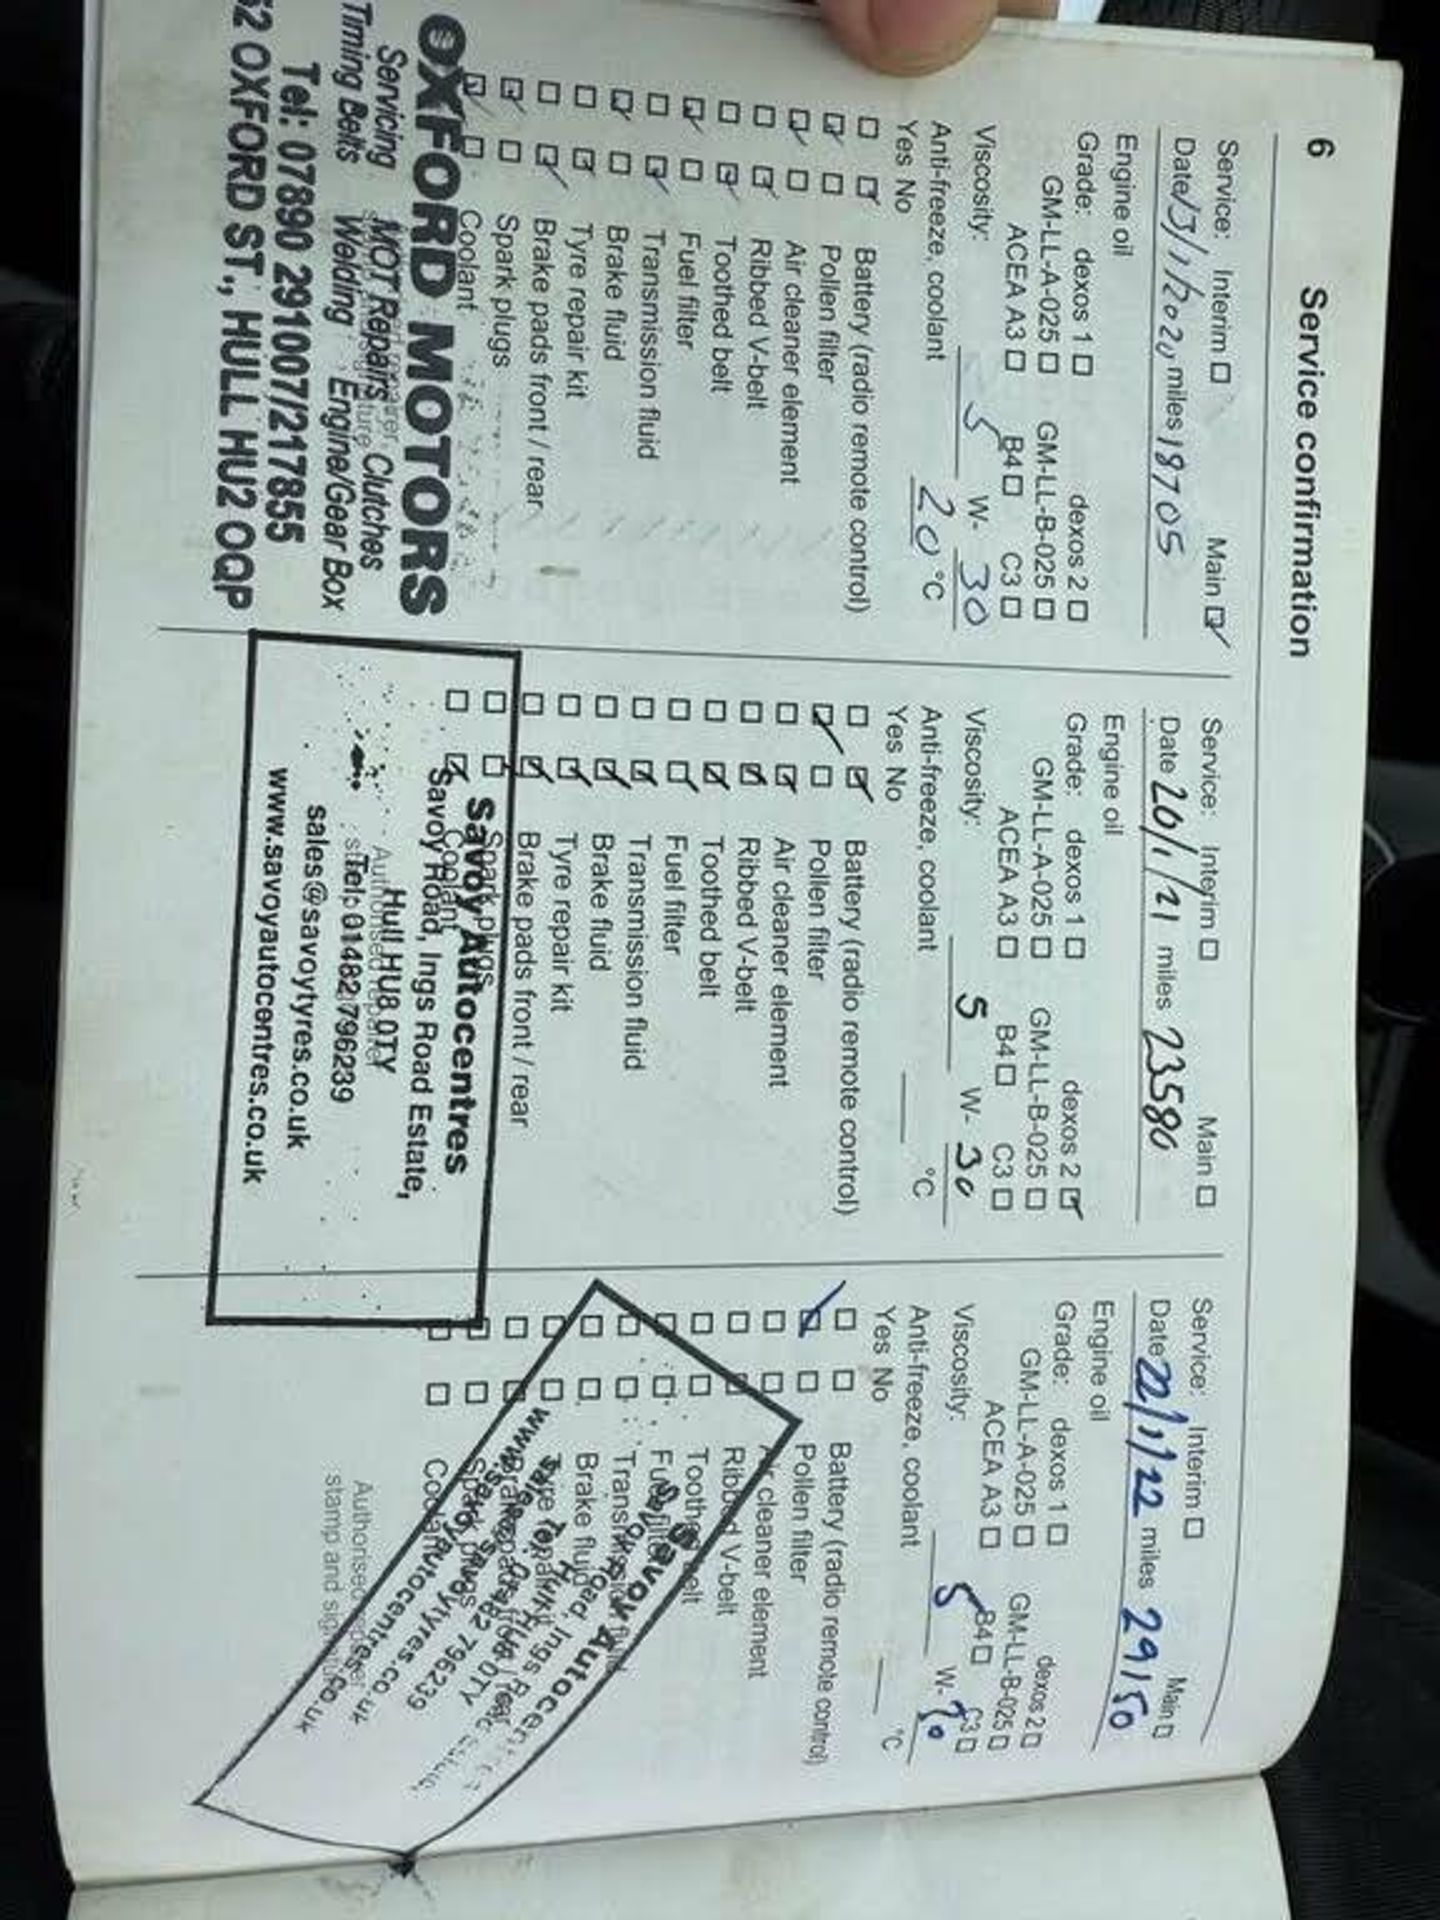 6 Service confirmation
Service: Interim Main
Date 15/1/2020 miles 18705
Engine oil
Grade: dexos 1 dexos 2
GM-LL-A-025 GM-LL-B-025
ACEA A3 B4 C3
Viscosity: 5 W- 30
Anti-freeze, coolant 20 °C
Yes No
Battery (radio remote control)
Pollen filter
Air cleaner element
Ribbed V-belt
Toothed belt
Fuel filter
Transmission fluid
Brake fluid
Tyre repair kit
Brake pads front / rear
Spark plugs
Coolant
OXFORD MOTORS
Servicing MOT Repairs Clutches
Timing Belts Welding Engine/Gear Box
Tel: 07890 291007/217855
62 OXFORD ST., HULL HU2 0QP
Service: Interim Main
Date 20/1/21 miles 23580
Engine oil
Grade: dexos 1 dexos 2
GM-LL-A-025 GM-LL-B-025
ACEA A3 B4 C3
Viscosity: 5 W- 30
Anti-freeze, coolant °C
Yes No
Battery (radio remote control)
Pollen filter
Air cleaner element
Ribbed V-belt
Toothed belt
Fuel filter
Transmission fluid
Brake fluid
Tyre repair kit
Brake pads front / rear
Spark plugs
Coolant
Savoy Autocentres
Savoy Road, Ings Road Estate,
Hull HU8 0TY
Authorised repairer
Tel: 01482 796239
sales@savoytyres.co.uk
www.savoyautocentres.co.uk
Service: Interim Main
Date 22/1/22 miles 29150
Engine oil
Grade: dexos 1 dexos 2
GM-LL-A-025 GM-LL-B-025
ACEA A3 B4 C3
Viscosity: 5 W-
Anti-freeze, coolant °C
Yes No
Battery (radio remote control)
Pollen filter
Air cleaner element
Ribbed V-belt
Toothed belt
Fuel filter
Transmission fluid
Brake fluid
Tyre repair kit
Brake pads front / rear
Spark plugs
Coolant
Savoy Autocen
Savoy Road, Ings R
Hull HU8 0TY
Tel: 01482 796239
sales@savoytyres.co.uk
www.savoyautocentres.co.uk
Authorised repairer
stamp and signature